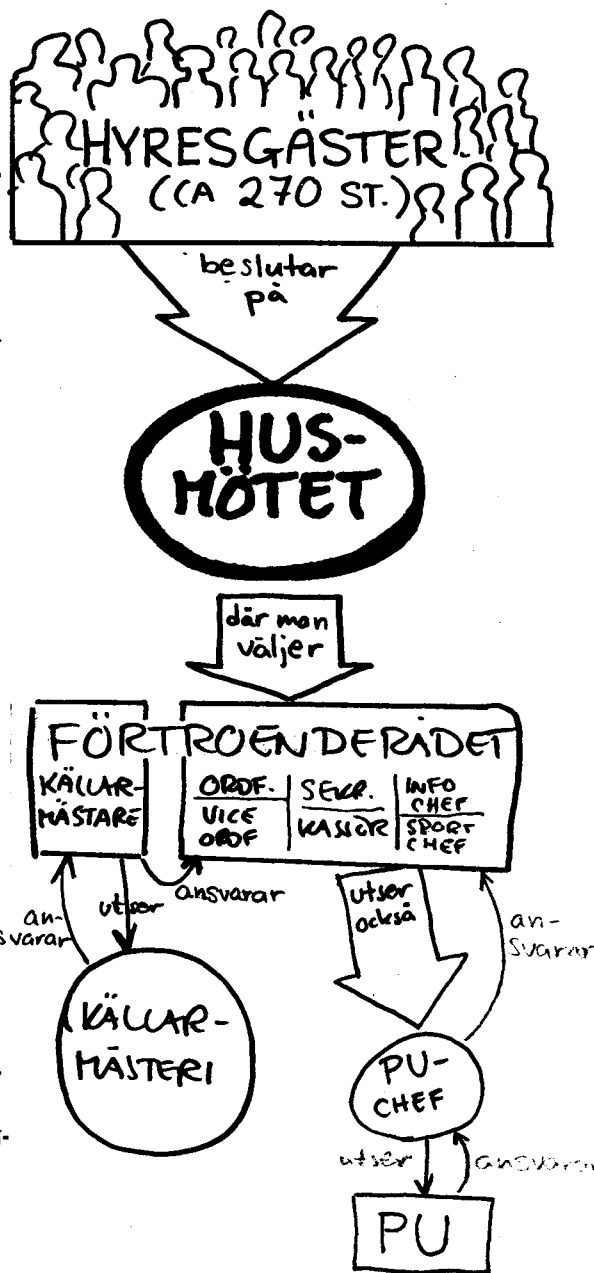 HYRESGÄSTER
(CA 270 ST.)
beslutar
på
HUS-
MÖTET
där man
väljer
FÖRTROENDERÅDET
KÄLLAR-
MÄSTARE
ORDF.
VICE
ORDF
SEKR.
KASSÖR
INFO
CHEF
SPORT
CHEF
an-
svarar
utser
ansvarar
utser
också
an-
svarar
KÄLLAR-
MÄSTERI
PU-
CHEF
utser
ansvarar
PU